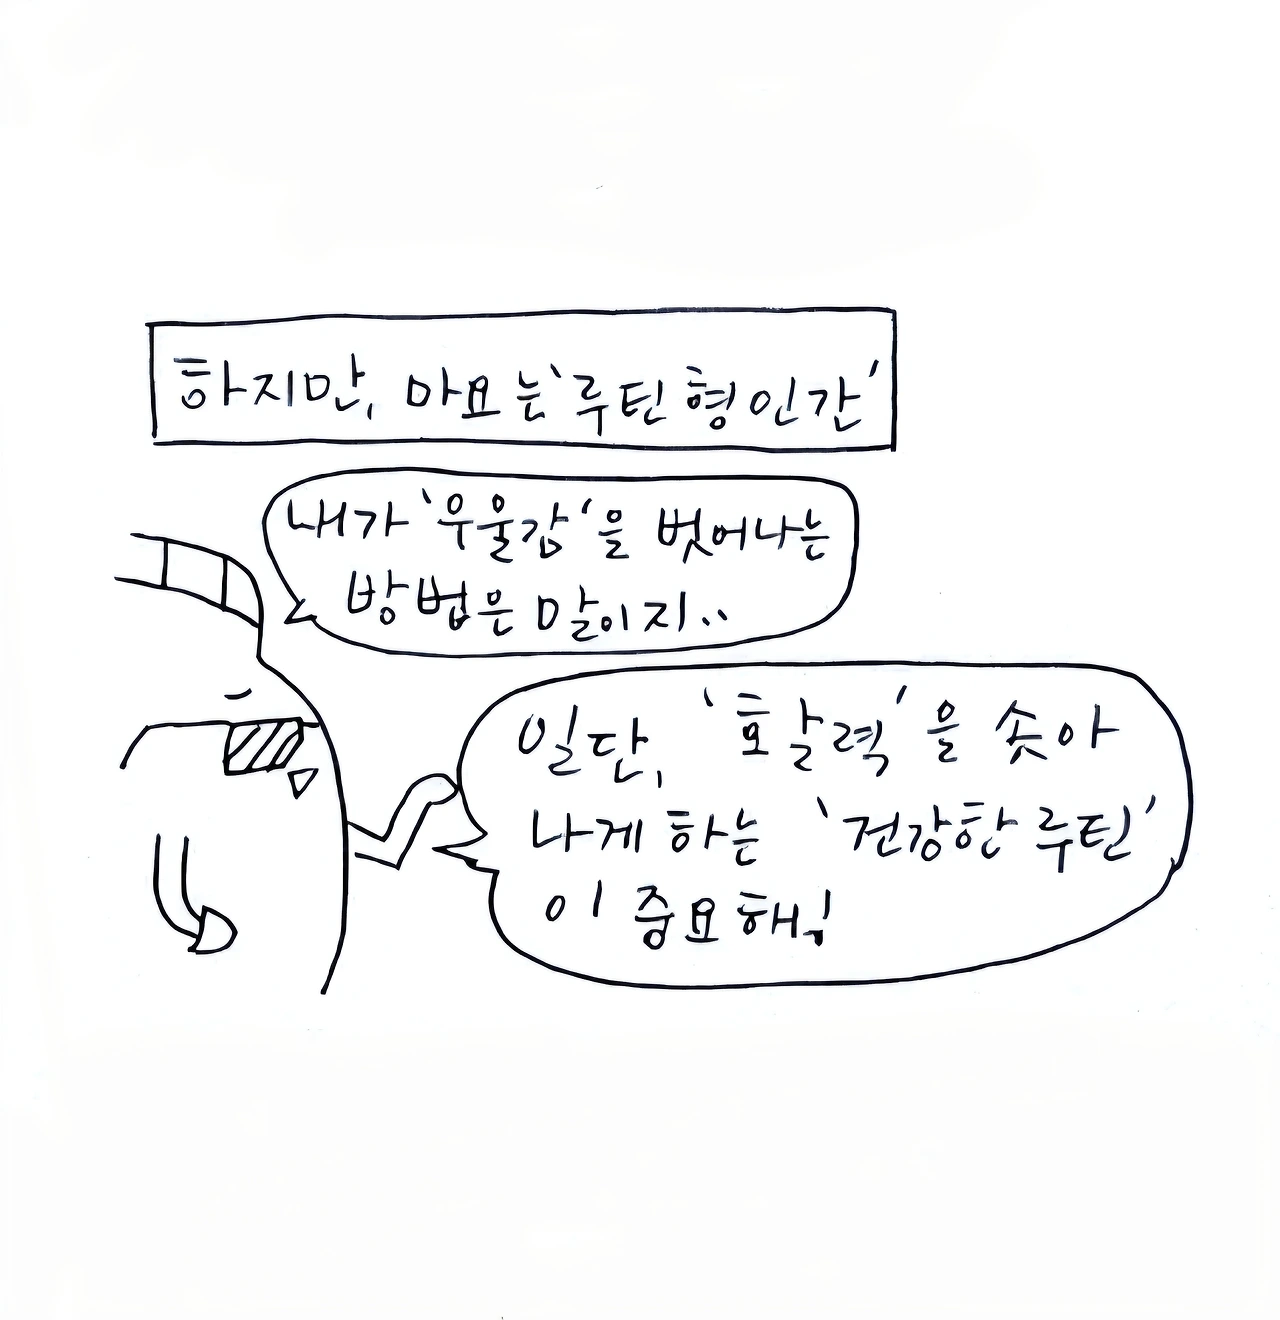 하지만, 마요는 '루틴형인간'
내가 '우울감'을 벗어나는
방법은 말이지..
일단, '호활력'을 솟아
나게 하는 '건강한 루틴'
이 중요해!